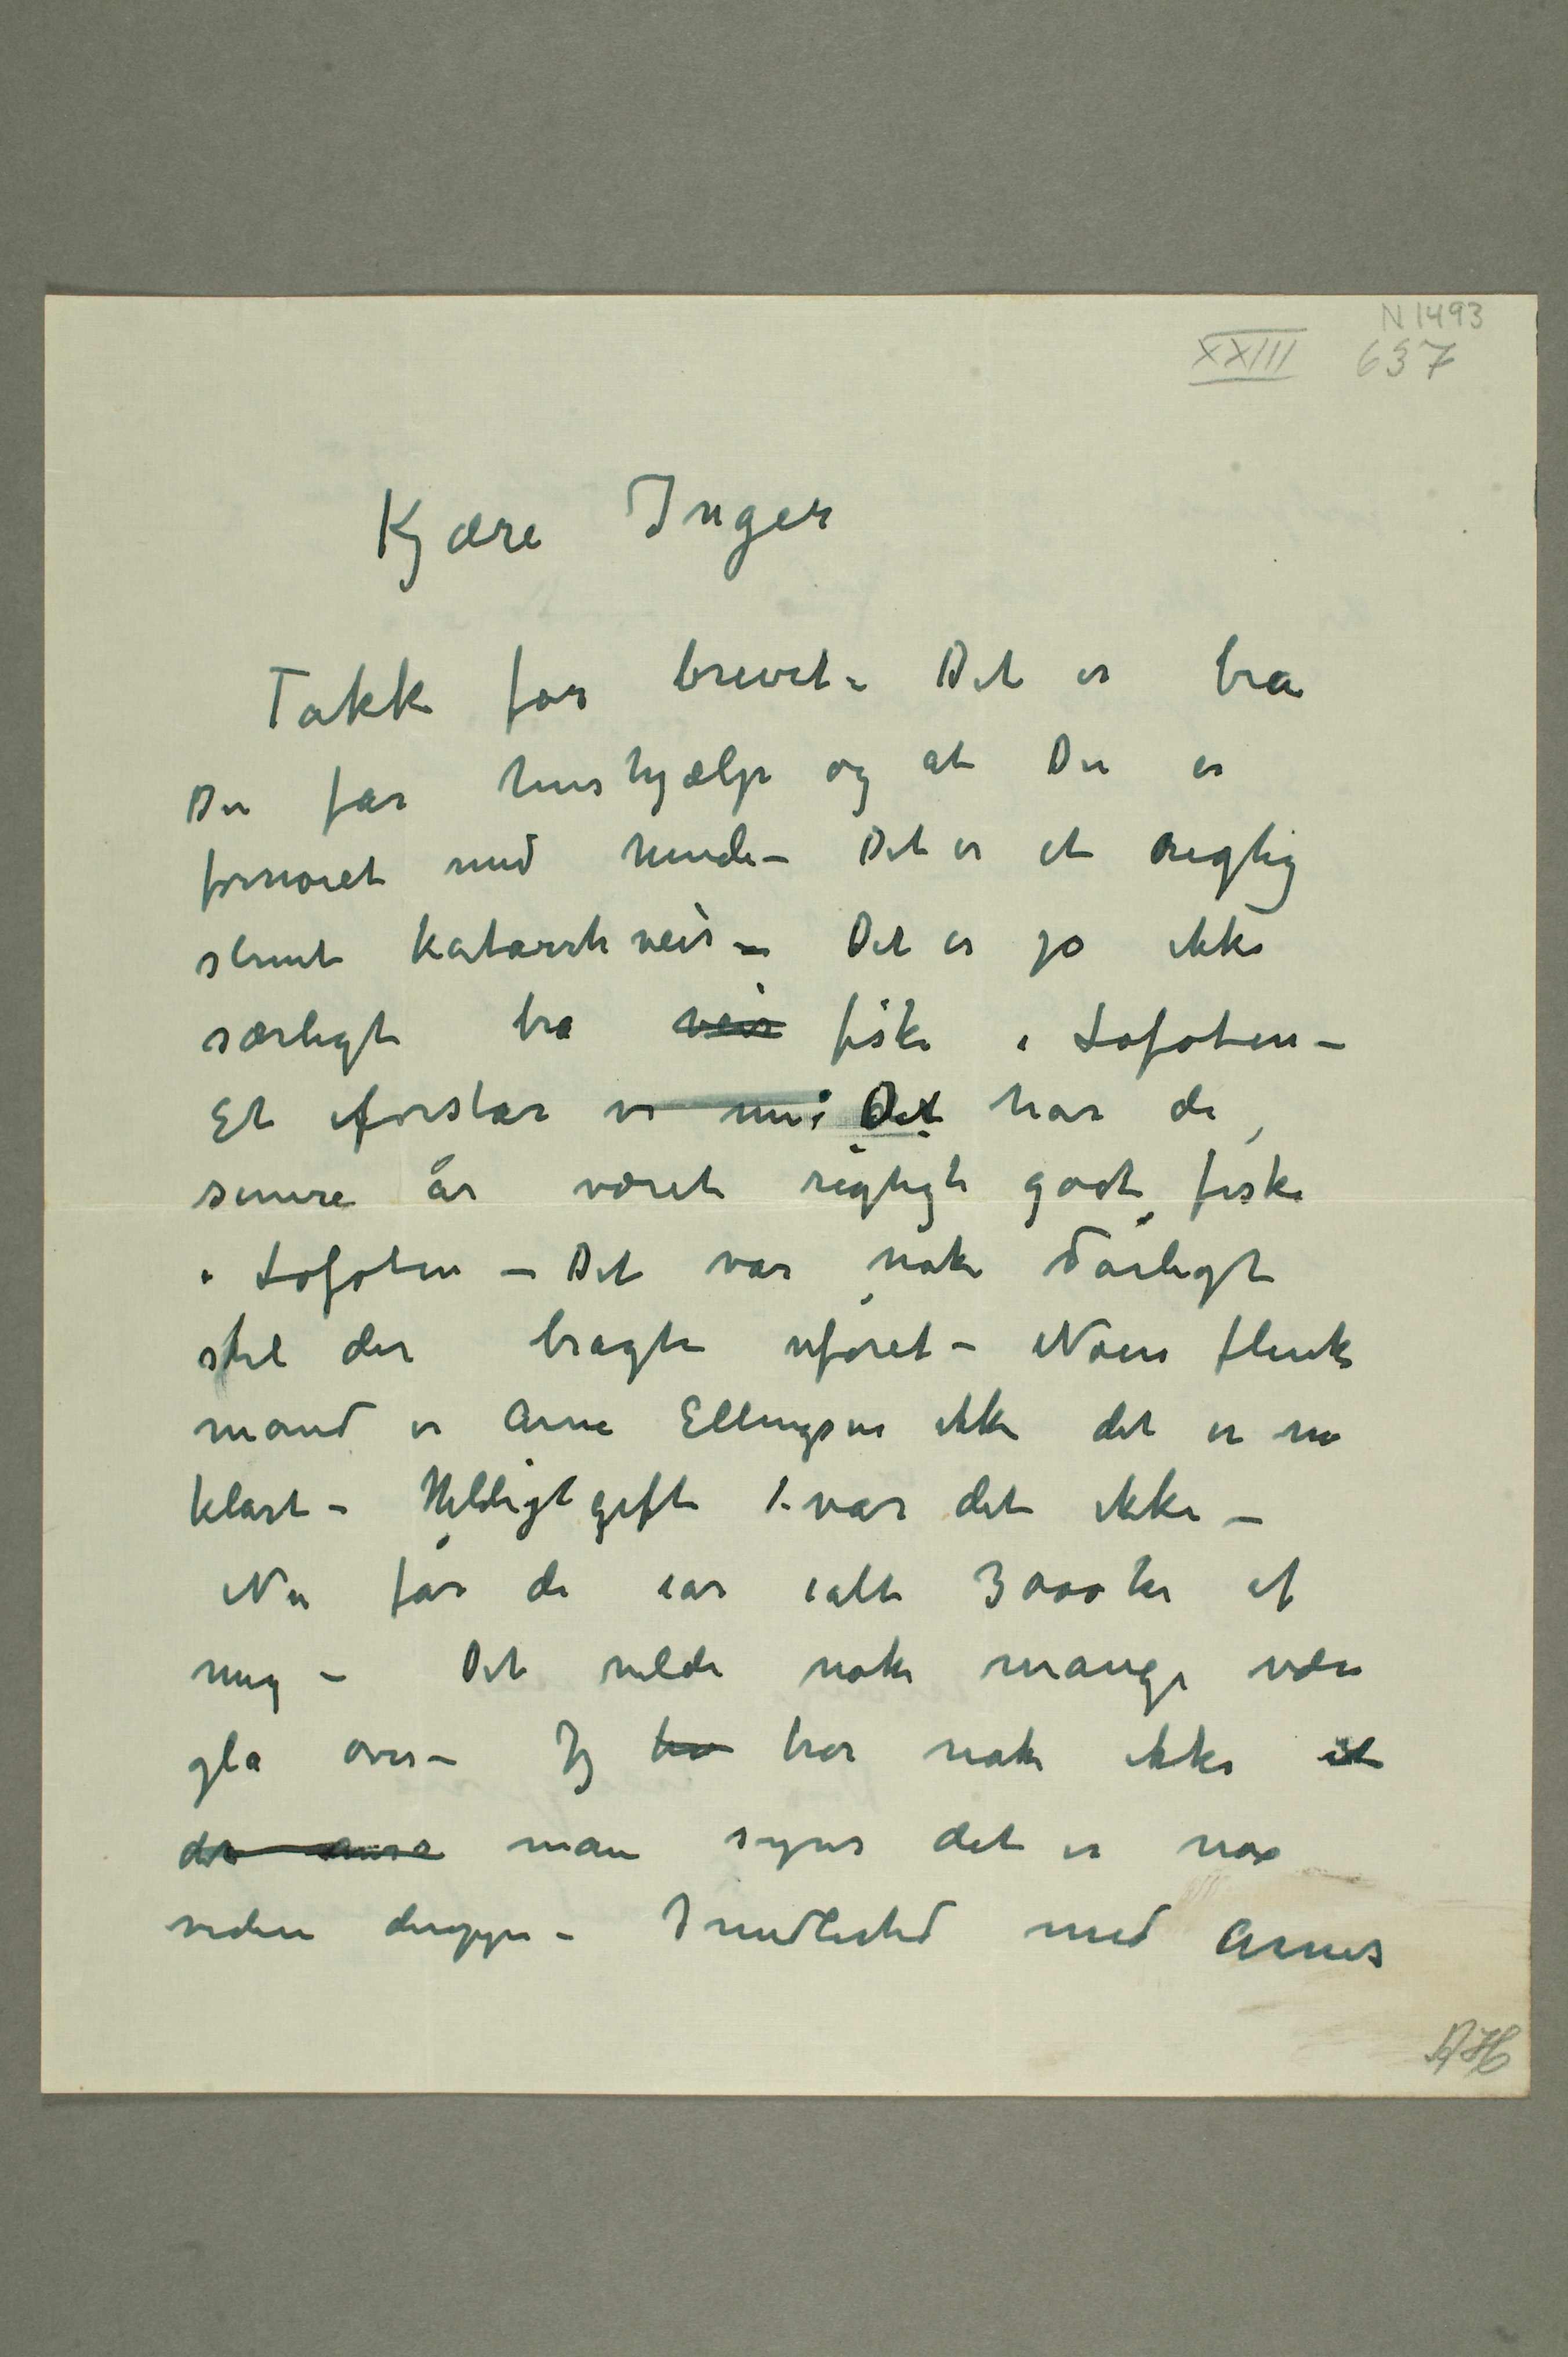 N 1493
XXIII 637
Kjære Inger
Takk for brevet – Det er bra
Du får hushjælp og at Du er
fornøiet med hende – Det er et rigtig
slemt katarrh veir – Det er jo ikke
særligt bra veir fiske i Lofoten –
Et forstår vi nu: Det har de
senere år været rigtigt godt fiske
i Lofoten – Det var nok dårligt
stel der bragte uføret – Noen flink
mand er Arne Ellingsen ikke det er nu
klart – Heldigt gift var det ikke –
Nu får de iår ialt 3000 kr af
mig – Det vilde nok mange være
gla over – Jeg tro tror nok ikke at
de man synes det er nox
videre deroppe – Imidlertid med Arnes
AH